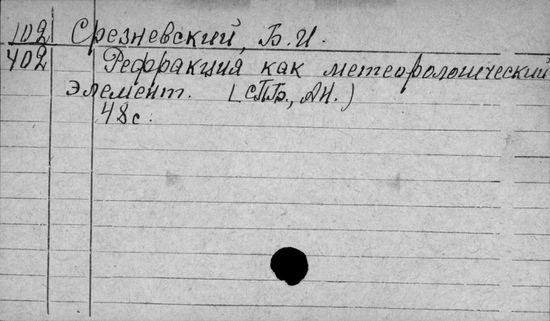 102 Срезневский, Б.И.
402 Рефракция как метеорологический
элемент. (СПБ., АН.)
48с.